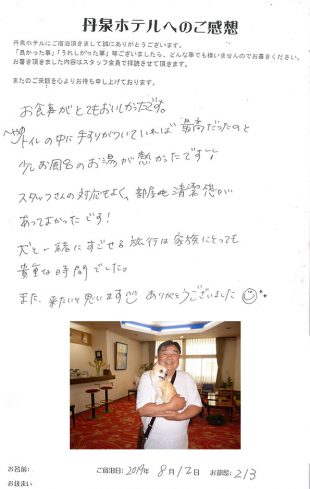 丹泉ホテルへのご感想
丹泉ホテルにご宿泊頂きまして誠にありがとうございます。
「良かった事」「うれしかった事」等ございましたら、どんな事でも構いませんのでお書きください。
お書き頂きました内容はスタッフ全員で拝読させて頂きます。
またのご来館を心よりお待ち申し上げております。
お食事がとてもおいしかったです。
へやの
トイレの中に手すりがついていれば最高だったのと
少しお風呂のお湯が熱かったです
スタッフさんの対応もよく、部屋も清潔感が
あってよかったです!
犬と一緒にすごせる旅行は家族にとっても
貴重な時間でした。
また、来たいと思います ありがとうございました
お名前:
ご宿泊日: 2019年 8月12日 お部屋: 213
お住まい